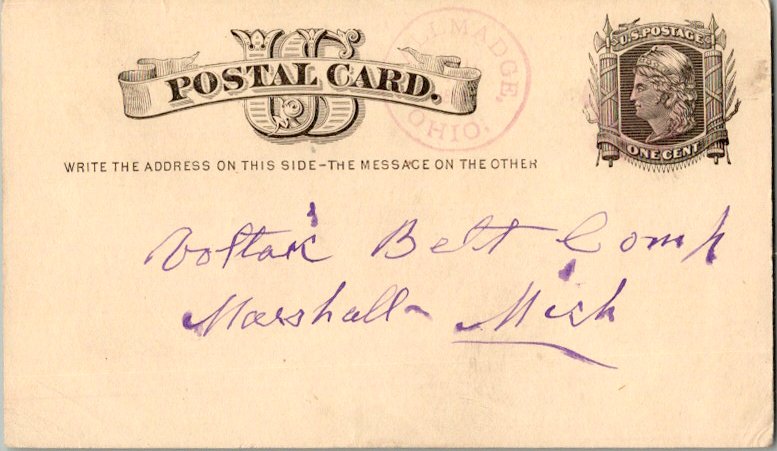 US
POSTAL CARD.
U.S. POSTAGE
ONE CENT
MADGE, OHIO.
WRITE THE ADDRESS ON THIS SIDE-THE MESSAGE ON THE OTHER
Voltaic Belt Comp
Marshall Mich